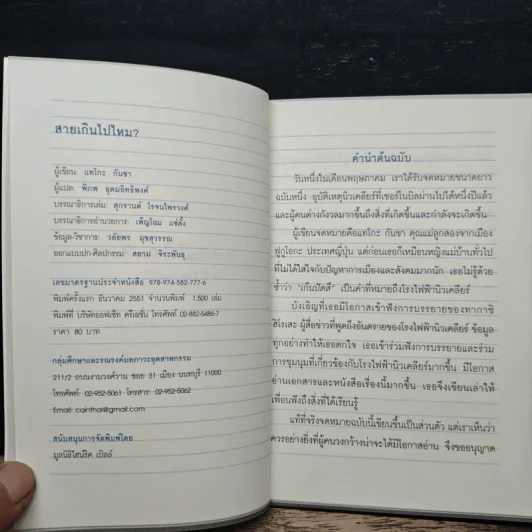 สายเกินไปไหม?
ผู้เขียน: แทโกะ กันชา
ผู้แปล: พิภพ อุดมอิทธิพงศ์
บรรณาธิการเล่ม: สุกรานต์ โรจนไพรวงศ์
บรรณาธิการอำนวยการ: เพ็ญโฉม แซ่ตั้ง
ข้อมูล-วิชาการ: วลัยพร มุขสุวรรณ
ออกแบบปก-ศิลปกรรม: สยาม จิระพันธุ
เลขมาตรฐานประจำหนังสือ 978-974-582-777-6
พิมพ์ครั้งแรก ธันวาคม 2551 จำนวนพิมพ์ 1,500 เล่ม
พิมพ์ที่ บริษัทออฟเซ็ท ครีเอชั่น โทรศัพท์ 02-882-5486-7
ราคา 80 บาท
กลุ่มศึกษาและรณรงค์มลภาวะอุตสาหกรรม
211/2 ถนนงามวงศ์วาน ซอย 31 เมือง นนทบุรี 11000
โทรศัพท์: 02-952-5061 โทรสาร: 02-952-5062
Email: cainthai@gmail.com
สนับสนุนการจัดพิมพ์โดย
มูลนิธิไฮน์ริค เบิลล์
คำนำต้นฉบับ
วันหนึ่งในเดือนพฤษภาคม เราได้รับจดหมายขนาดยาว
ฉบับหนึ่ง อุบัติเหตุนิวเคลียร์ที่เชอร์โนบิลผ่านไปได้หนึ่งปีแล้ว
และผู้คนต่างกังวลมากขึ้นถึงสิ่งที่เกิดขึ้นและกำลังจะเกิดขึ้น
ผู้เขียนจดหมายคือแทโกะ กันชา คุณแม่ลูกสองจากเมือง
ฟูกูโอกะ ประเทศญี่ปุ่น แต่ก่อนเธอก็เหมือนหญิงแม่บ้านทั่วไป
ที่ไม่ได้ใส่ใจกับปัญหาการเมืองและสังคมมากนัก เธอไม่รู้ด้วย
ซ้ำว่า "เก็นปัตสึ" เป็นคำที่หมายถึงโรงไฟฟ้านิวเคลียร์
บังเอิญที่เธอมีโอกาสเข้าฟังการบรรยายของทากาชิ
ฮิโรเสะ ผู้สื่อข่าวที่พูดถึงอันตรายของโรงไฟฟ้านิวเคลียร์ ข้อมูล
ทุกอย่างทำให้เธอตกใจ เธอเข้าร่วมฟังการบรรยายและร่วม
การชุมนุมที่เกี่ยวข้องกับโรงไฟฟ้านิวเคลียร์มากขึ้น มีโอกาส
อ่านเอกสารและหนังสือเรื่องนี้มากขึ้น เธอจึงเขียนเล่าให้
เพื่อนฟังถึงสิ่งที่ได้เรียนรู้
แท้ที่จริงจดหมายฉบับนี้เขียนขึ้นเป็นส่วนตัว แต่เราเห็นว่า
ควรอย่างยิ่งที่ผู้คนวงกว้างน่าจะได้มีโอกาสอ่าน จึงขออนุญาต